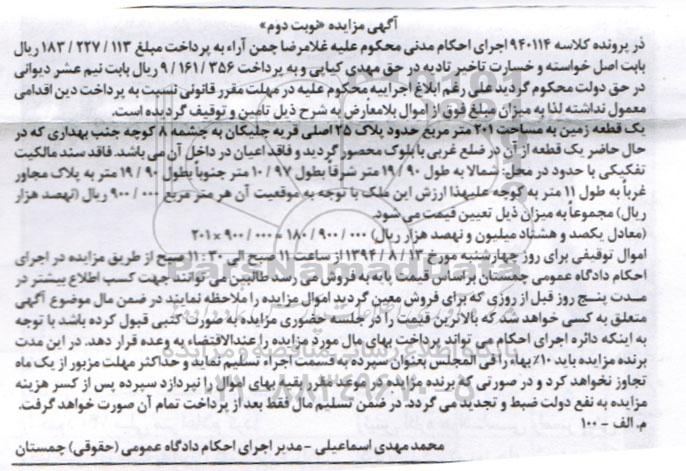 آگهی مزایده «نوبت دوم»
در پرونده کلاسه ۹۴۰۱۱۴ اجرای احکام مدنی محکوم علیه غلامرضا چمن آراء به پرداخت مبلغ ۱۱۳ / ۲۲۷ / ۱۸۳ ریال
بابت اصل خواسته و خسارت تاخیر تادیه در حق مهدی کیابی و به پرداخت ۳۵۶ / ۱۶۱ / ۹ ریال بابت نیم عشر دیوانی
در حق دولت محکوم گردید علی رغم ابلاغ اجراییه محکوم علیه در مهلت مقرر قانونی نسبت به پرداخت دین اقدامی
معمول نداشته لذا به میزان مبلغ فوق از اموال بلامعارض به شرح ذیل تامین و توقیف گردیده است.
یک قطعه زمین به مساحت ۲۰۱ متر مربع حدود پلاک ۲۵ اصلی قریه جلیکان به چشمه ۸ کوچه جنب بهداری که در
حال حاضر یک قطعه از آن در ضلع غربی با بلوک محصور گردید و فاقد اعیان در داخل آن می باشد. فاقد سند مالکیت
تفکیکی با حدود در محل: شمالا به طول ۹۰ / ۱۹ متر شرقاً بطول ۹۷ / ۱۰ متر جنوباً بطول ۹۰ / ۱۹ متر به پلاک مجاور
غرباً به طول ۱۱ متر به کوچه علیهذا ارزش این ملک با توجه به موقعیت آن هر متر مربع ۰۰۰ / ۹۰۰ ریال (نهصد هزار
ریال) مجموعاً به میزان ذیل تعیین قیمت می شود.
(معادل یکصد و هشتاد میلیون و نهصد هزار ریال) ۰۰۰ / ۹۰۰ / ۱۸۰ = ۰۰۰ / ۹۰۰ × ۲۰۱
اموال توقیفی برای روز چهارشنبه مورخ ۱۳ / ۸ / ۱۳۹۴ از ساعت ۱۱ صبح الی ۳۰ : ۱۱ صبح از طریق مزایده در اجرای
احکام دادگاه عمومی چمستان براساس قیمت پایه به فروش می رسد طالبین می توانند جهت کسب اطلاع بیشتر در
مدت پنج روز قبل از روزی که برای فروش معین گردید اموال مزایده را ملاحظه نمایند در ضمن مال موضوع آگهی
متعلق به کسی خواهد شد که بالاترین قیمت را در جلسه حضوری مزایده به صورت کتبی قبول کرده باشد با توجه
به اینکه دائره اجرای احکام می تواند پرداخت بهای مال مورد مزایده را عندالاقتضاء به وعده قرار دهد. در این مدت
برنده مزایده باید ۱۰٪ بهاء را فی المجلس بعنوان سپرده به قسمت اجراء تسلیم نماید و حداکثر مهلت مزبور از یک ماه
تجاوز نخواهد کرد و در صورتی که برنده مزایده در موعد مقرر بقیه بهای اموال را نپردازد سپرده پس از کسر هزینه
مزایده به نفع دولت ضبط و تجدید می گردد. در ضمن تسلیم مال فقط بعد از پرداخت تمام آن صورت خواهد گرفت.
م. الف - ۱۰۰
محمد مهدی اسماعیلی - مدیر اجرای احکام دادگاه عمومی (حقوقی) چمستان
ParsNamadData